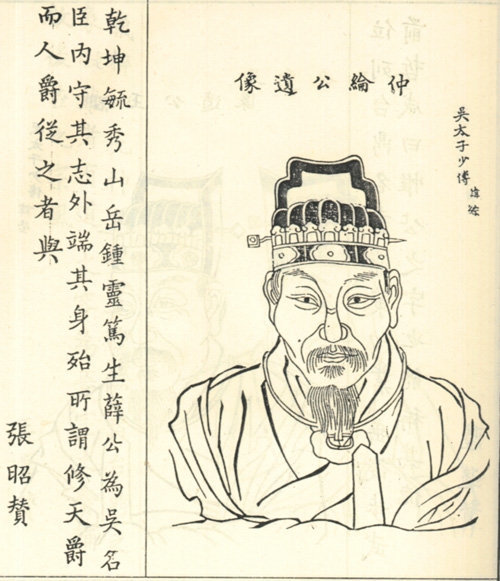 吳太子少傅 諱綜
仲綸公遺像
乾坤毓秀山岳鍾靈篤生薛公為吳名
臣內守其志外端其身殆所謂修天爵
而人爵從之者與
張昭賛